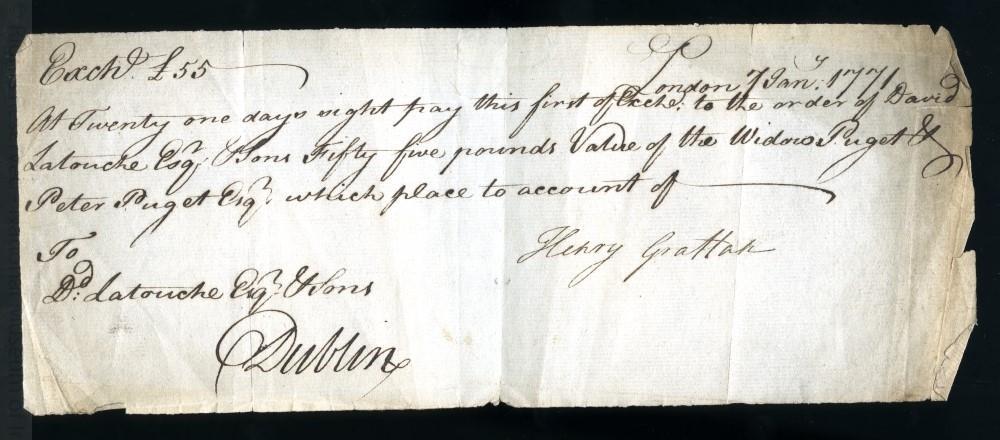 Exchᵉ. £55
London 7 Janʸ: 1771
At Twenty one days sight pay this first of Exche: to the order of David
Latouche Esqʳ. & Sons Fifty five pounds Value of the Widow Puget &
Peter Puget Esqʳ. which place to account of
Henry Grattan
To
Dᵈ: Latouche Esqʳ. & Sons
Dublin